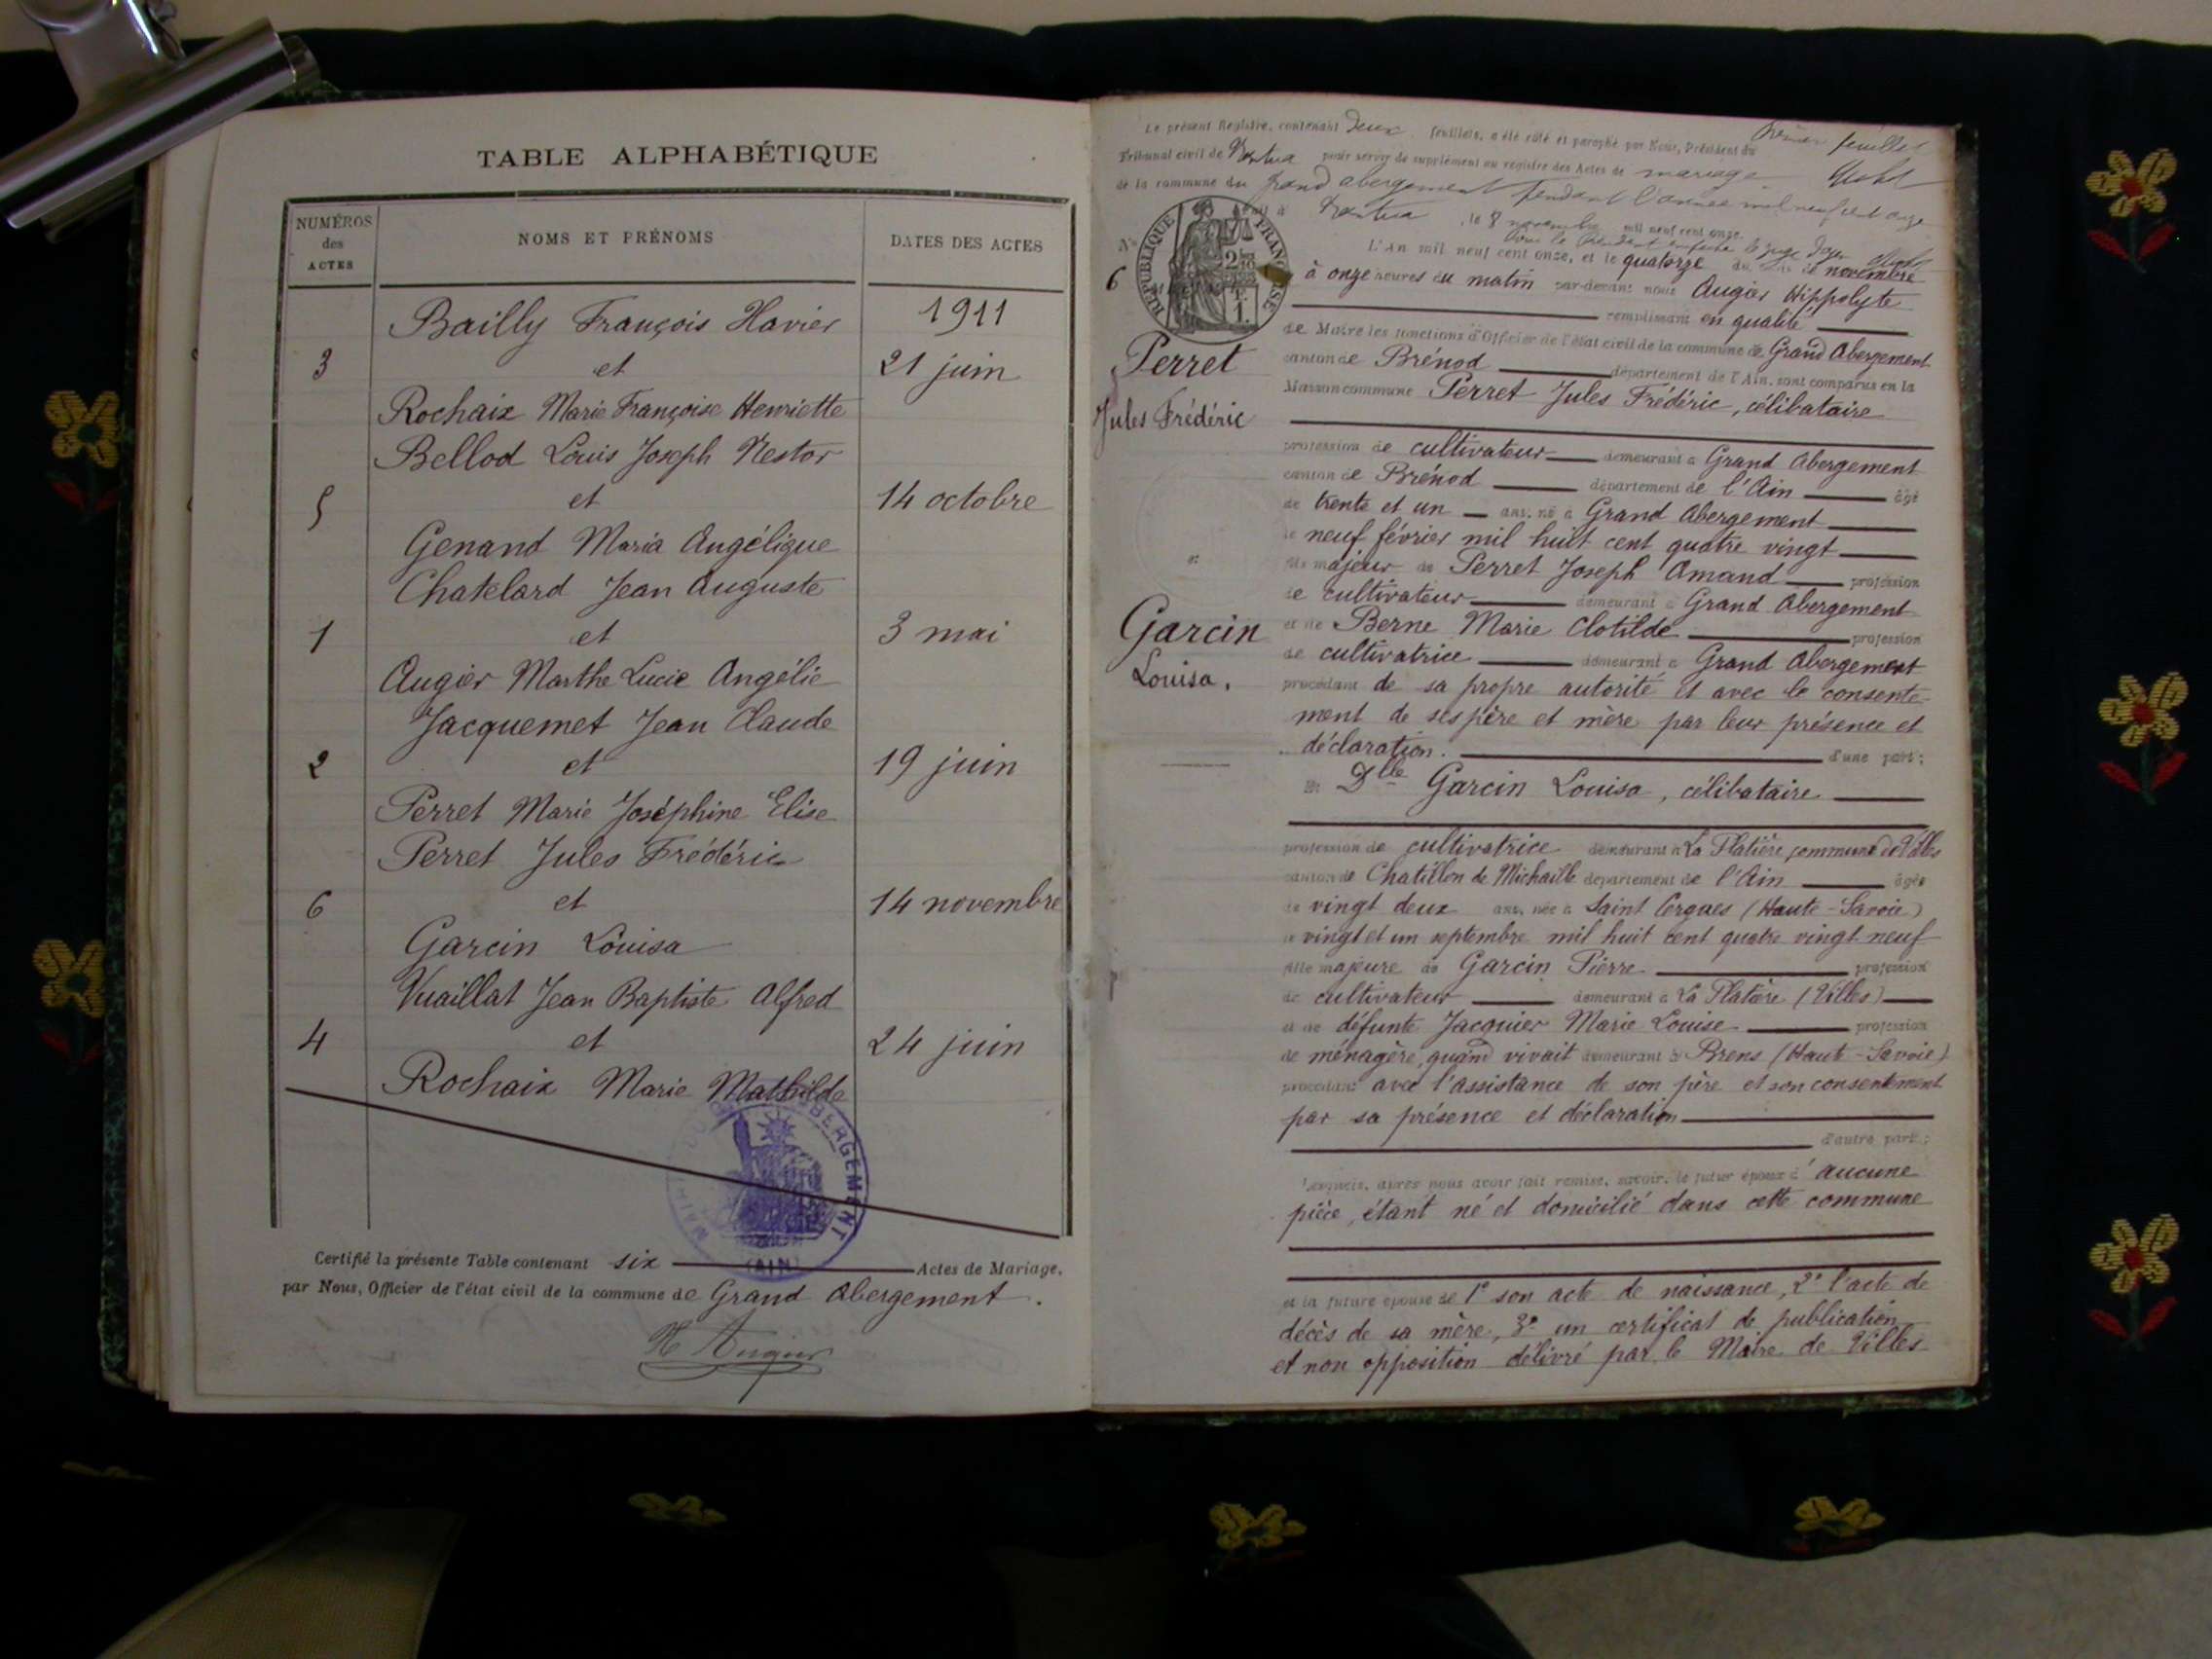 TABLE ALPHABÉTIQUE
NUMÉROS des ACTES
NOMS ET PRÉNOMS
DATES DES ACTES
1911
Bailly François Xavier
3 et 21 juin
Rochaix Marie Françoise Henriette
Bellod Louis Joseph Nestor
5 et 14 octobre
Genand Maria Angélique
Chatelard Jean Auguste
1 et 3 mai
Augier Marthe Lucie Angélie
Jacquemet Jean Claude
2 et 19 juin
Perret Marie Joséphine Elise
Perret Jules Frédéric
6 et 14 novembre
Garcin Louisa
Vuaillat Jean Baptiste Alfred
4 et 24 juin
Rochaix Marie Mathilde
ABERGEMENT
(AIN)
Certifié la présente Table contenant six Actes de Mariage,
par Nous, Officier de l'état civil de la commune de Grand Abergement.
H Augier
feuillet
Le présent Registre, contenant deux feuillets, a été coté et paraphé par Nous, Président du
Tribunal civil de Nantua pour servir de supplément au registre des Actes de mariage
de la commune du Grand abergement pendant l'année mil neuf cent onze
Fait à Nantua, le 8 novembre mil neuf cent onze.
RÉPUBLIQUE FRANÇAISE
N° 6
L'An mil neuf cent onze, et le quatorze du mois de novembre
à onze heures du matin par-devant nous Augier Hippolyte
remplissant en qualité
de Maire les fonctions d'Officier de l'état civil de la commune de Grand Abergement
canton de Brénod département de l'Ain, sont comparus en la
Maison commune Perret Jules Frédéric, célibataire
Perret
Jules Frédéric
profession de cultivateur demeurant à Grand Abergement
canton de Brénod département de l'Ain âgé
de trente et un ans, né à Grand Abergement
le neuf février mil huit cent quatre vingt
fils majeur de Perret Joseph Amand profession
de cultivateur demeurant à Grand Abergement
et
Garcin
Louisa.
et de Berne Marie Clotilde profession
de cultivatrice demeurant à Grand Abergement
procédant de sa propre autorité et avec le consente-
ment de ses père et mère par leur présence et
déclaration. d'une part;
Et Dlle Garcin Louisa, célibataire
profession de cultivatrice demeurant à La Platière, commune de Villes
canton de Chatillon de Michaille département de l'Ain âgée
de vingt deux ans, née à Saint Cergues (Haute-Savoie)
le vingt et un septembre mil huit cent quatre vingt neuf
fille majeure de Garcin Pierre profession
de cultivateur demeurant à La Platière (Villes)
et de défunte Jacquier Marie Louise profession
de ménagère, quand vivait demeurant à Brens (Haute-Savoie)
procédant avec l'assistance de son père et son consentement
par sa présence et déclaration
d'autre part;
Lesquels, après nous avoir fait remise, savoir: le futur époux d'aucune
pièce, étant né et domicilié dans cette commune
et la future épouse de 1° son acte de naissance, 2° l'acte de
décès de sa mère, 3° un certificat de publication
et non opposition délivré par le Maire de Villes